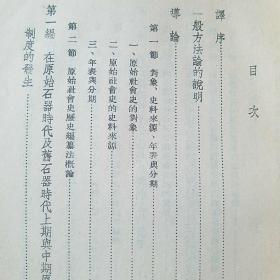 目次
譯序
一般方法論的說明
導論
第一節 對象、史料來源、年表與分期
一、原始社會史的對象
二、原始社會史的史料來源
三、年表與分期
第二節 原始社會史歷史編纂法概論
第一編 在原始石器時代及舊石器時代上期與中期原
制度的發生